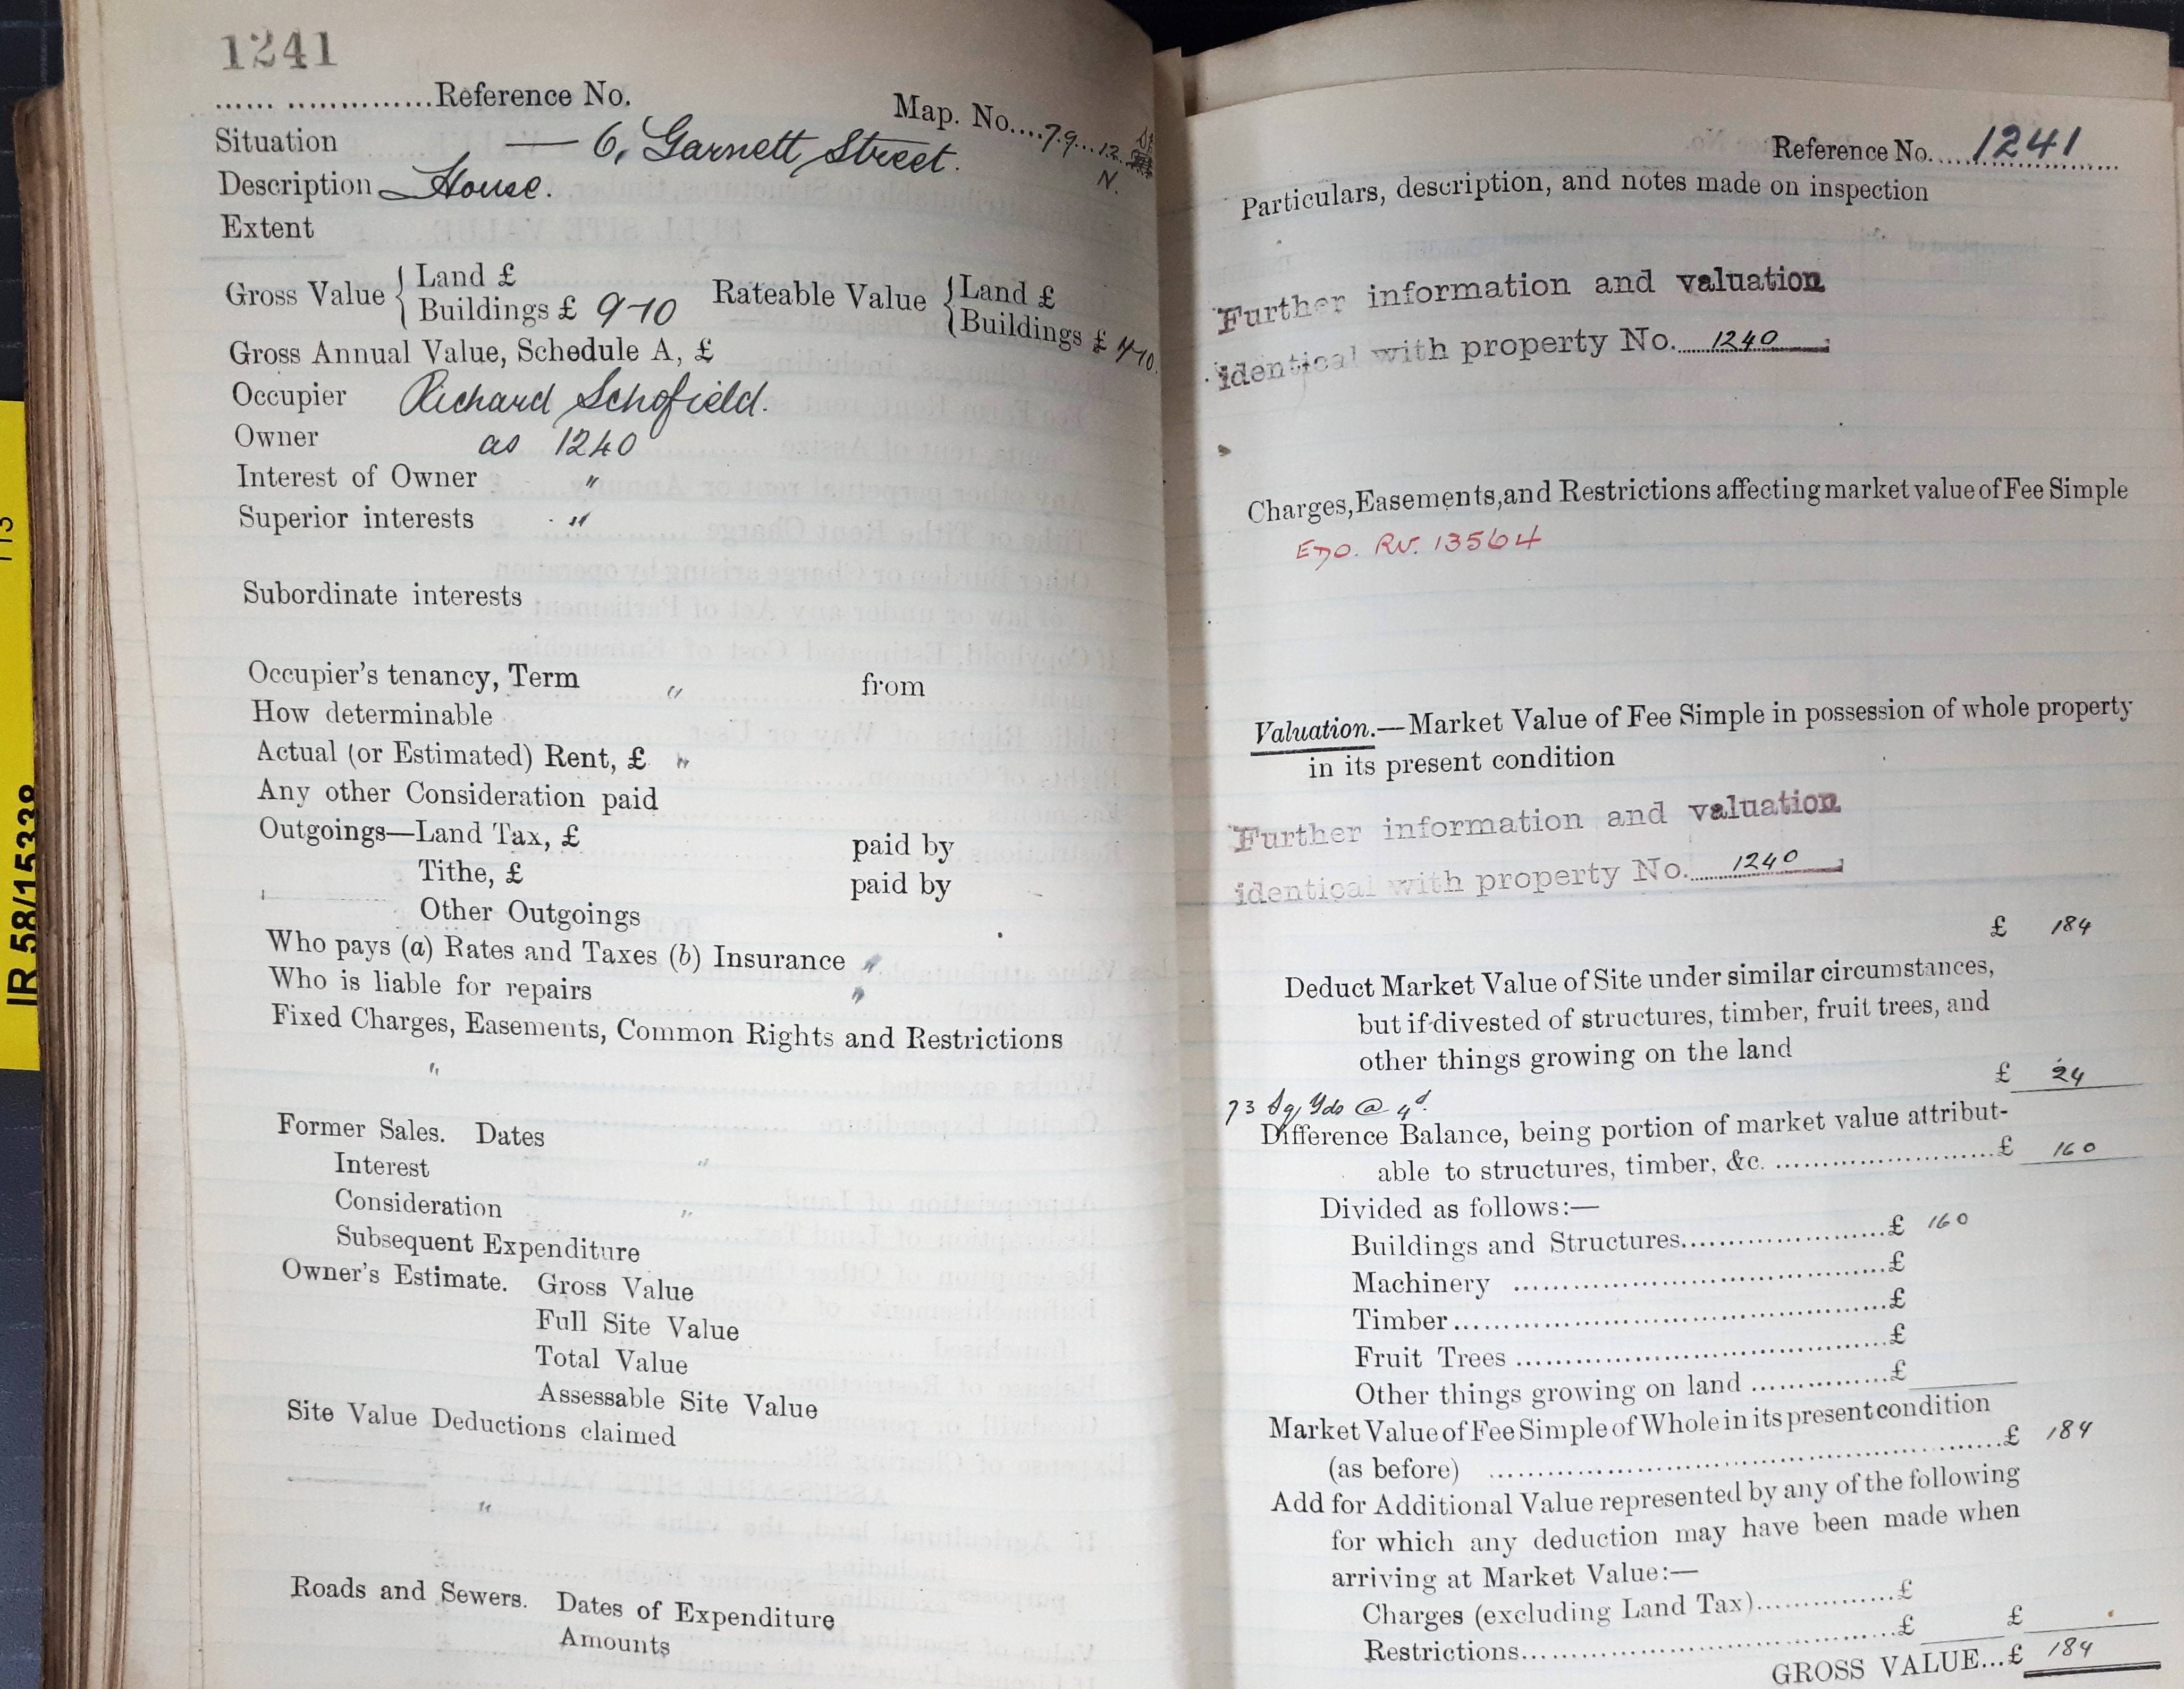 1241
...... ...............Reference No.
Map. No....79...12.
N.
Situation — 6, Garnett Street.
Description House.
Extent
Gross Value { Land £
Buildings £ 9-10
Rateable Value { Land £
Buildings £ 7-10.
Gross Annual Value, Schedule A, £
Occupier Richard Schofield.
Owner as 1240
Interest of Owner "
Superior interests "
Subordinate interests
Occupier's tenancy, Term " from
How determinable
Actual (or Estimated) Rent, £ "
Any other Consideration paid
Outgoings—Land Tax, £ paid by
Tithe, £ paid by
Other Outgoings
Who pays (a) Rates and Taxes (b) Insurance "
Who is liable for repairs "
Fixed Charges, Easements, Common Rights and Restrictions
"
Former Sales. Dates
Interest "
Consideration "
Subsequent Expenditure
Owner's Estimate. Gross Value
Full Site Value
Total Value
Assessable Site Value
Site Value Deductions claimed
"
Roads and Sewers. Dates of Expenditure
Amounts
IR 58/15338
Reference No. 1241
Particulars, description, and notes made on inspection
Further information and valuation
identical with property No. 1240
Charges, Easements, and Restrictions affecting market value of Fee Simple
RV. 13564
Valuation.—Market Value of Fee Simple in possession of whole property
in its present condition
Further information and valuation
identical with property No. 1240
£ 184
Deduct Market Value of Site under similar circumstances,
but if divested of structures, timber, fruit trees, and
other things growing on the land
£ 24
73 Sq Yds @ 4d.
Difference Balance, being portion of market value attribut-
able to structures, timber, &c. ........................£ 160
Divided as follows:—
Buildings and Structures......................£ 160
Machinery ........................................£
Timber..............................................£
Fruit Trees ........................................£
Other things growing on land ...............£
Market Value of Fee Simple of Whole in its present condition
(as before) ......................................................£ 184
Add for Additional Value represented by any of the following
for which any deduction may have been made when
arriving at Market Value:—
Charges (excluding Land Tax)...............£
Restrictions.......................................£ £
GROSS VALUE...£ 184